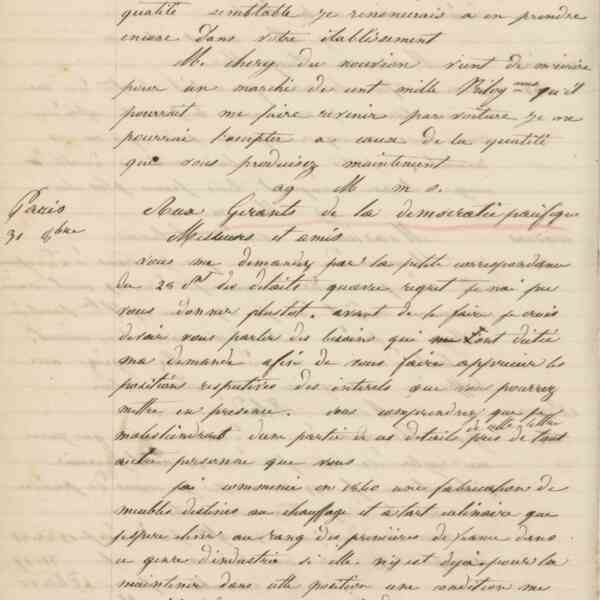 qualité semblable je renoncerais a en prendre
encore dans votre établissement
M. chery du nouvion vient de m'écrire
pour un marché de cent mille Kilog mes qu'il
pourrait me faire revenir par voiture je ne
pourrai l'accepter a cause de la qualité
que vous produisez maintenant
ag M m s.
Paris
31 8bre
Aux Gérants de la democratie pacifique
Messieurs et amis
vous me demandez par la petite correspondance
du 28 des details qu'avec regret je n'ai pu
vous donner plustôt. avant de le faire je crois
devoir vous parler des besoins qui m'ont dicté
ma demande afin de vous faire apprecier les
positions respectives des interets que vous pourrez
mettre en presence. vous comprendrez que je
de cette lettre
m'abstiendrait d'une partie de ces details près de tout
autre personne que vous
j'ai commencé en 1840 une fabrication de
meubles destinés au chauffage et a l'art culinaire que
j'espere elever au rang des premieres de france dans
ce genre d'industrie si elle n'y est deja. pour la
maintenir dans cette position une condition me